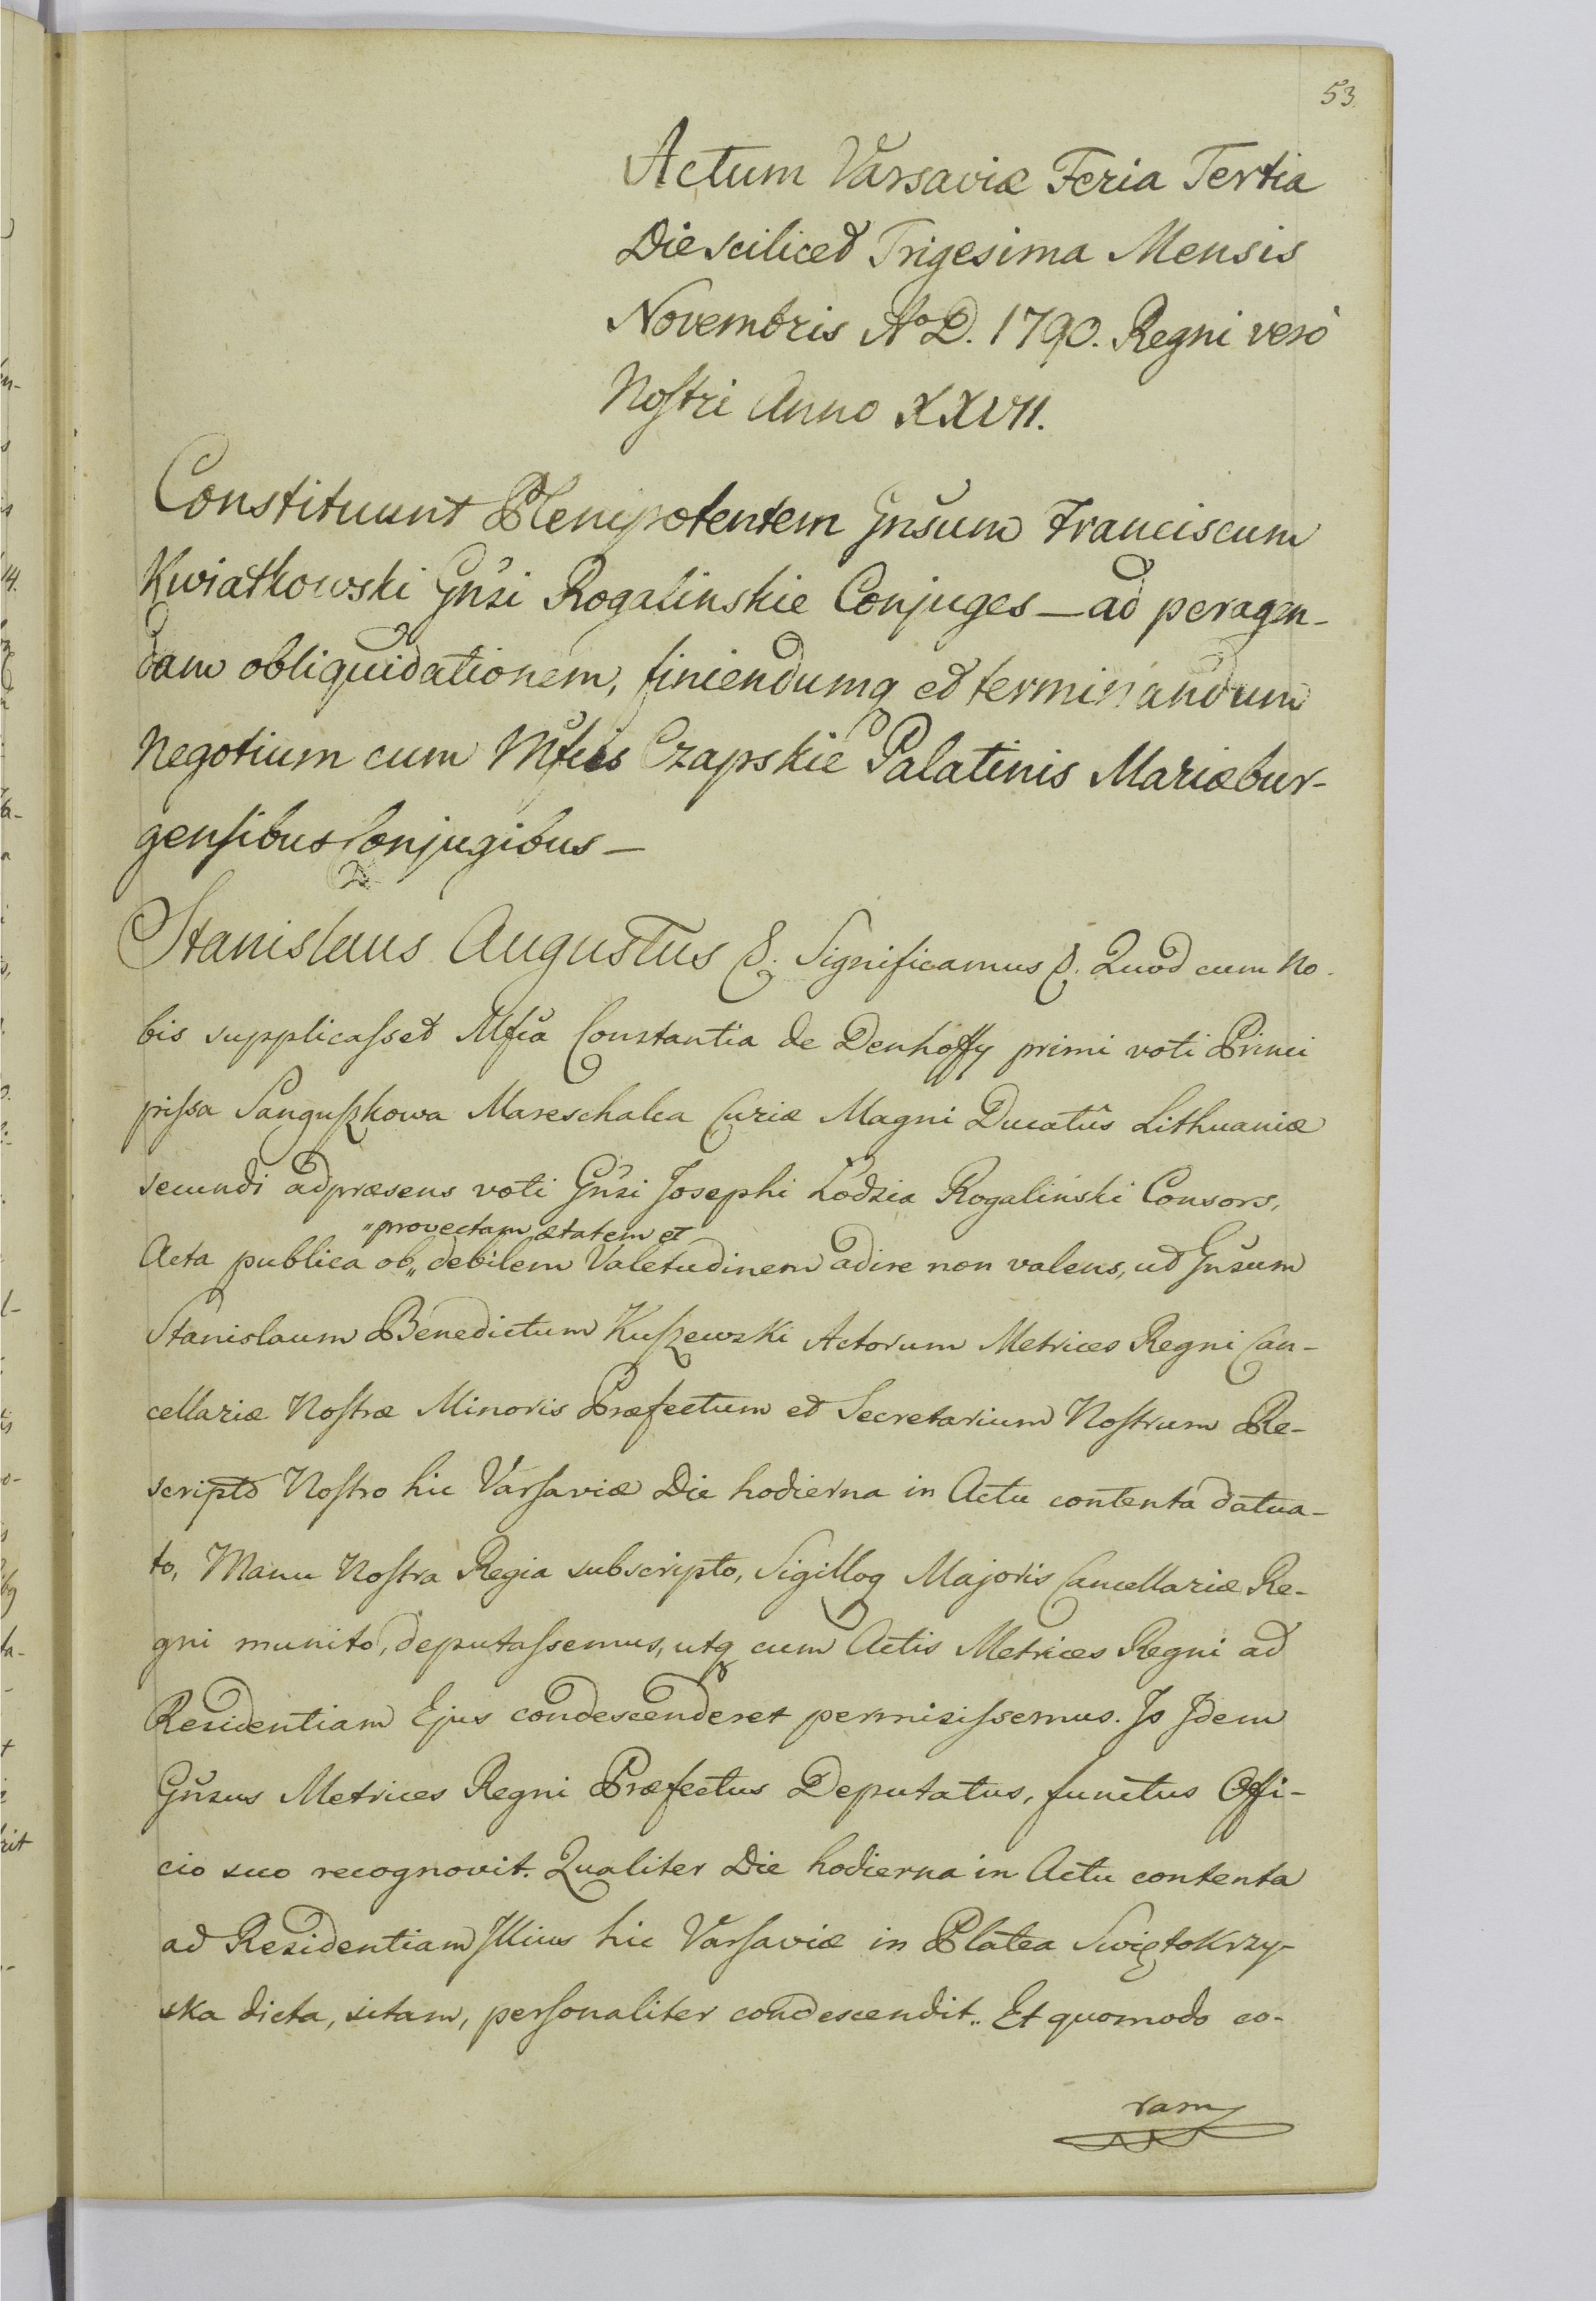 53.
Actum Varsaviæ Feria Tertia
Die scilicet Trigesima Mensis
Novembris Aº D. 1790. Regni verò
Noſtri Anno XXVII.
Constituunt Plenipotentem Gn̆sum Franciscum
Kwiatkowski Gn̆si Rogalinskie Conjuges — ad peragen-
dam obliquidationem, finiendumq et terminandum
Negotium cum Mfcis Czapskie Palatinis Mariæbur-
genſibus Conjugibus —
Stanislaus Augustus &. Significamus &. Quod cum No-
bis supplicaſset Mfca Constantia de Denhoffy primi voti Princi
piſsa Sanguſzkowa Mareschalca Curiæ Magni Ducatûs Lithuaniæ
secundi ad præsens voti Gn̆si Josephi Łodzia Rogaliński Consors,
„provectam ætatem et
Acta publica ob„ debilem Valetudinem adire non valens, ut Gn̆sum
Stanislaum Benedictum Kuſzewski Actorum Metrices Regni Can-
cellariæ Noſtræ Minoris Præfectum et Secretarium Noſtrum Re-
scripto Noſtro hic Varſaviæ Die hodierna in Actu contenta datua-
to, Manu Noſtra Regia subscripto, Sigilloq Majoris Cancellariæ Re-
gni munito, deputaſsemus, utq cum Actis Metrices Regni ad
Residentiam Ejus condescenderet permisiſsemus. Is Idem
Gn̆sus Metrices Regni Præfectus Deputatus, functus Offi-
cio suo recognovit. Qualiter Die hodierna in Actu contenta
ad Residentiam Illius hic Varſaviæ in Platea Swiętokrzy-
ska dicta, sitam, perſonaliter condescendit„ Et quomodo co-
ram